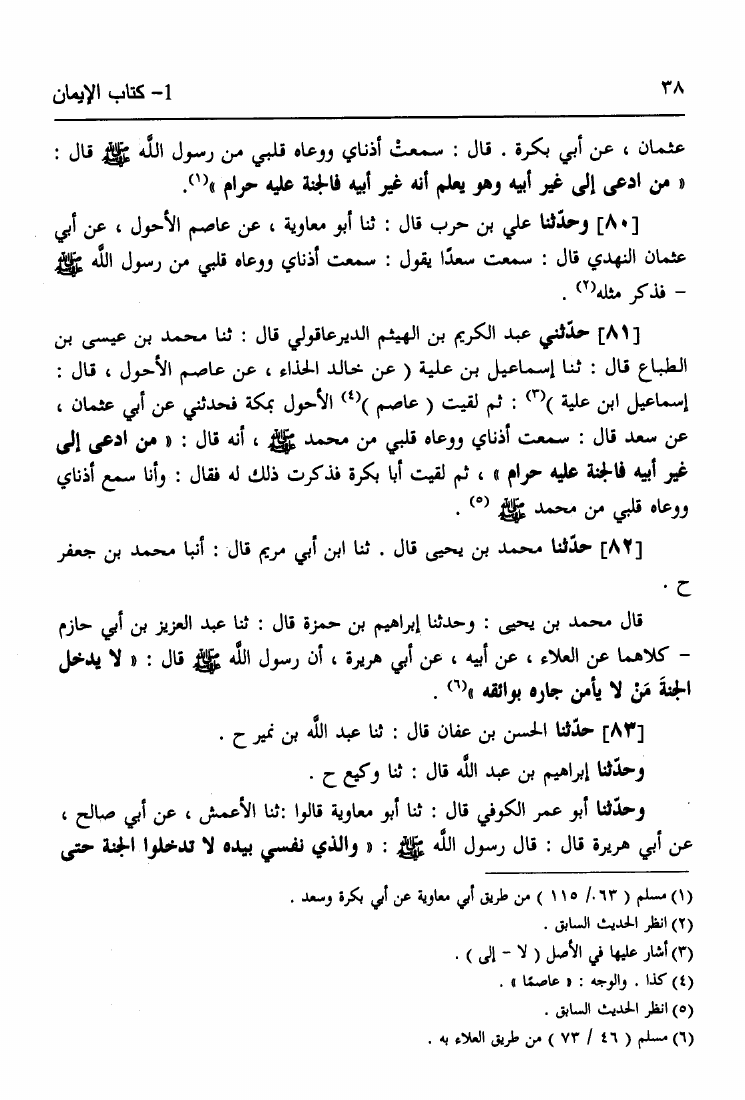 ٣٨ 1- كتاب الإيمان
عثمان ، عن أبي بكرة . قال : سمعتْ أذناي ووعاه قلبي من رسول اللَّه ﷺ قال :
« من ادعى إلى غير أبيه وهو يعلم أنه غير أبيه فالجنة عليه حرام »(١).
[٨٠] وحدّثنا علي بن حرب قال : ثنا أبو معاوية ، عن عاصم الأحول ، عن أبي
عثمان النهدي قال : سمعت سعدًا يقول : سمعت أذناي ووعاه قلبي من رسول اللَّه ﷺ
– فذكر مثله(٢) .
[٨١] حدّثني عبد الكريم بن الهيثم الديرعاقولي قال : ثنا محمد بن عيسى بن
الطباع قال : ثنا إسماعيل بن علية ( عن خالد الحذاء ، عن عاصم الأحول ، قال :
إسماعيل ابن علية )(٣) : ثم لقيت ( عاصم )(٤) الأحول بمكة فحدثني عن أبي عثمان ،
عن سعد قال : سمعت أذناي ووعاه قلبي من محمد ﷺ ، أنه قال : « من ادعى إلى
غير أبيه فالجنة عليه حرام » ، ثم لقيت أبا بكرة فذكرت ذلك له فقال : وأنا سمع أذناي
ووعاه قلبي من محمد ﷺ (٥) .
[٨٢] حدّثنا محمد بن يحيى قال . ثنا ابن أبي مريم قال : أنبا محمد بن جعفر
ح .
قال محمد بن يحيى : وحدثنا إبراهيم بن حمزة قال : ثنا عبد العزيز بن أبي حازم
– كلاهما عن العلاء ، عن أبيه ، عن أبي هريرة ، أن رسول اللَّه ﷺ قال : « لا يدخل
الجنةَ مَنْ لا يأمن جاره بوائقه »(٦) .
[٨٣] حدّثنا الحسن بن عفان قال : ثنا عبد اللَّه بن نمير ح .
وحدّثنا إبراهيم بن عبد اللَّه قال : ثنا وكيع ح .
وحدّثنا أبو عمر الكوفي قال : ثنا أبو معاوية قالوا :ثنا الأعمش ، عن أبي صالح ،
عن أبي هريرة قال : قال رسول اللَّه ﷺ : « والذي نفسي بيده لا تدخلوا الجنة حتى
(١) مسلم ( ٦٣. / ١١٥ ) من طريق أبي معاوية عن أبي بكرة وسعد .
(٢) انظر الحديث السابق .
(٣) أشار عليها في الأصل ( لا – إلى ) .
(٤) كذا . والوجه : « عاصمًا » .
(٥) انظر الحديث السابق .
(٦) مسلم ( ٤٦ / ٧٣ ) من طريق العلاء به .